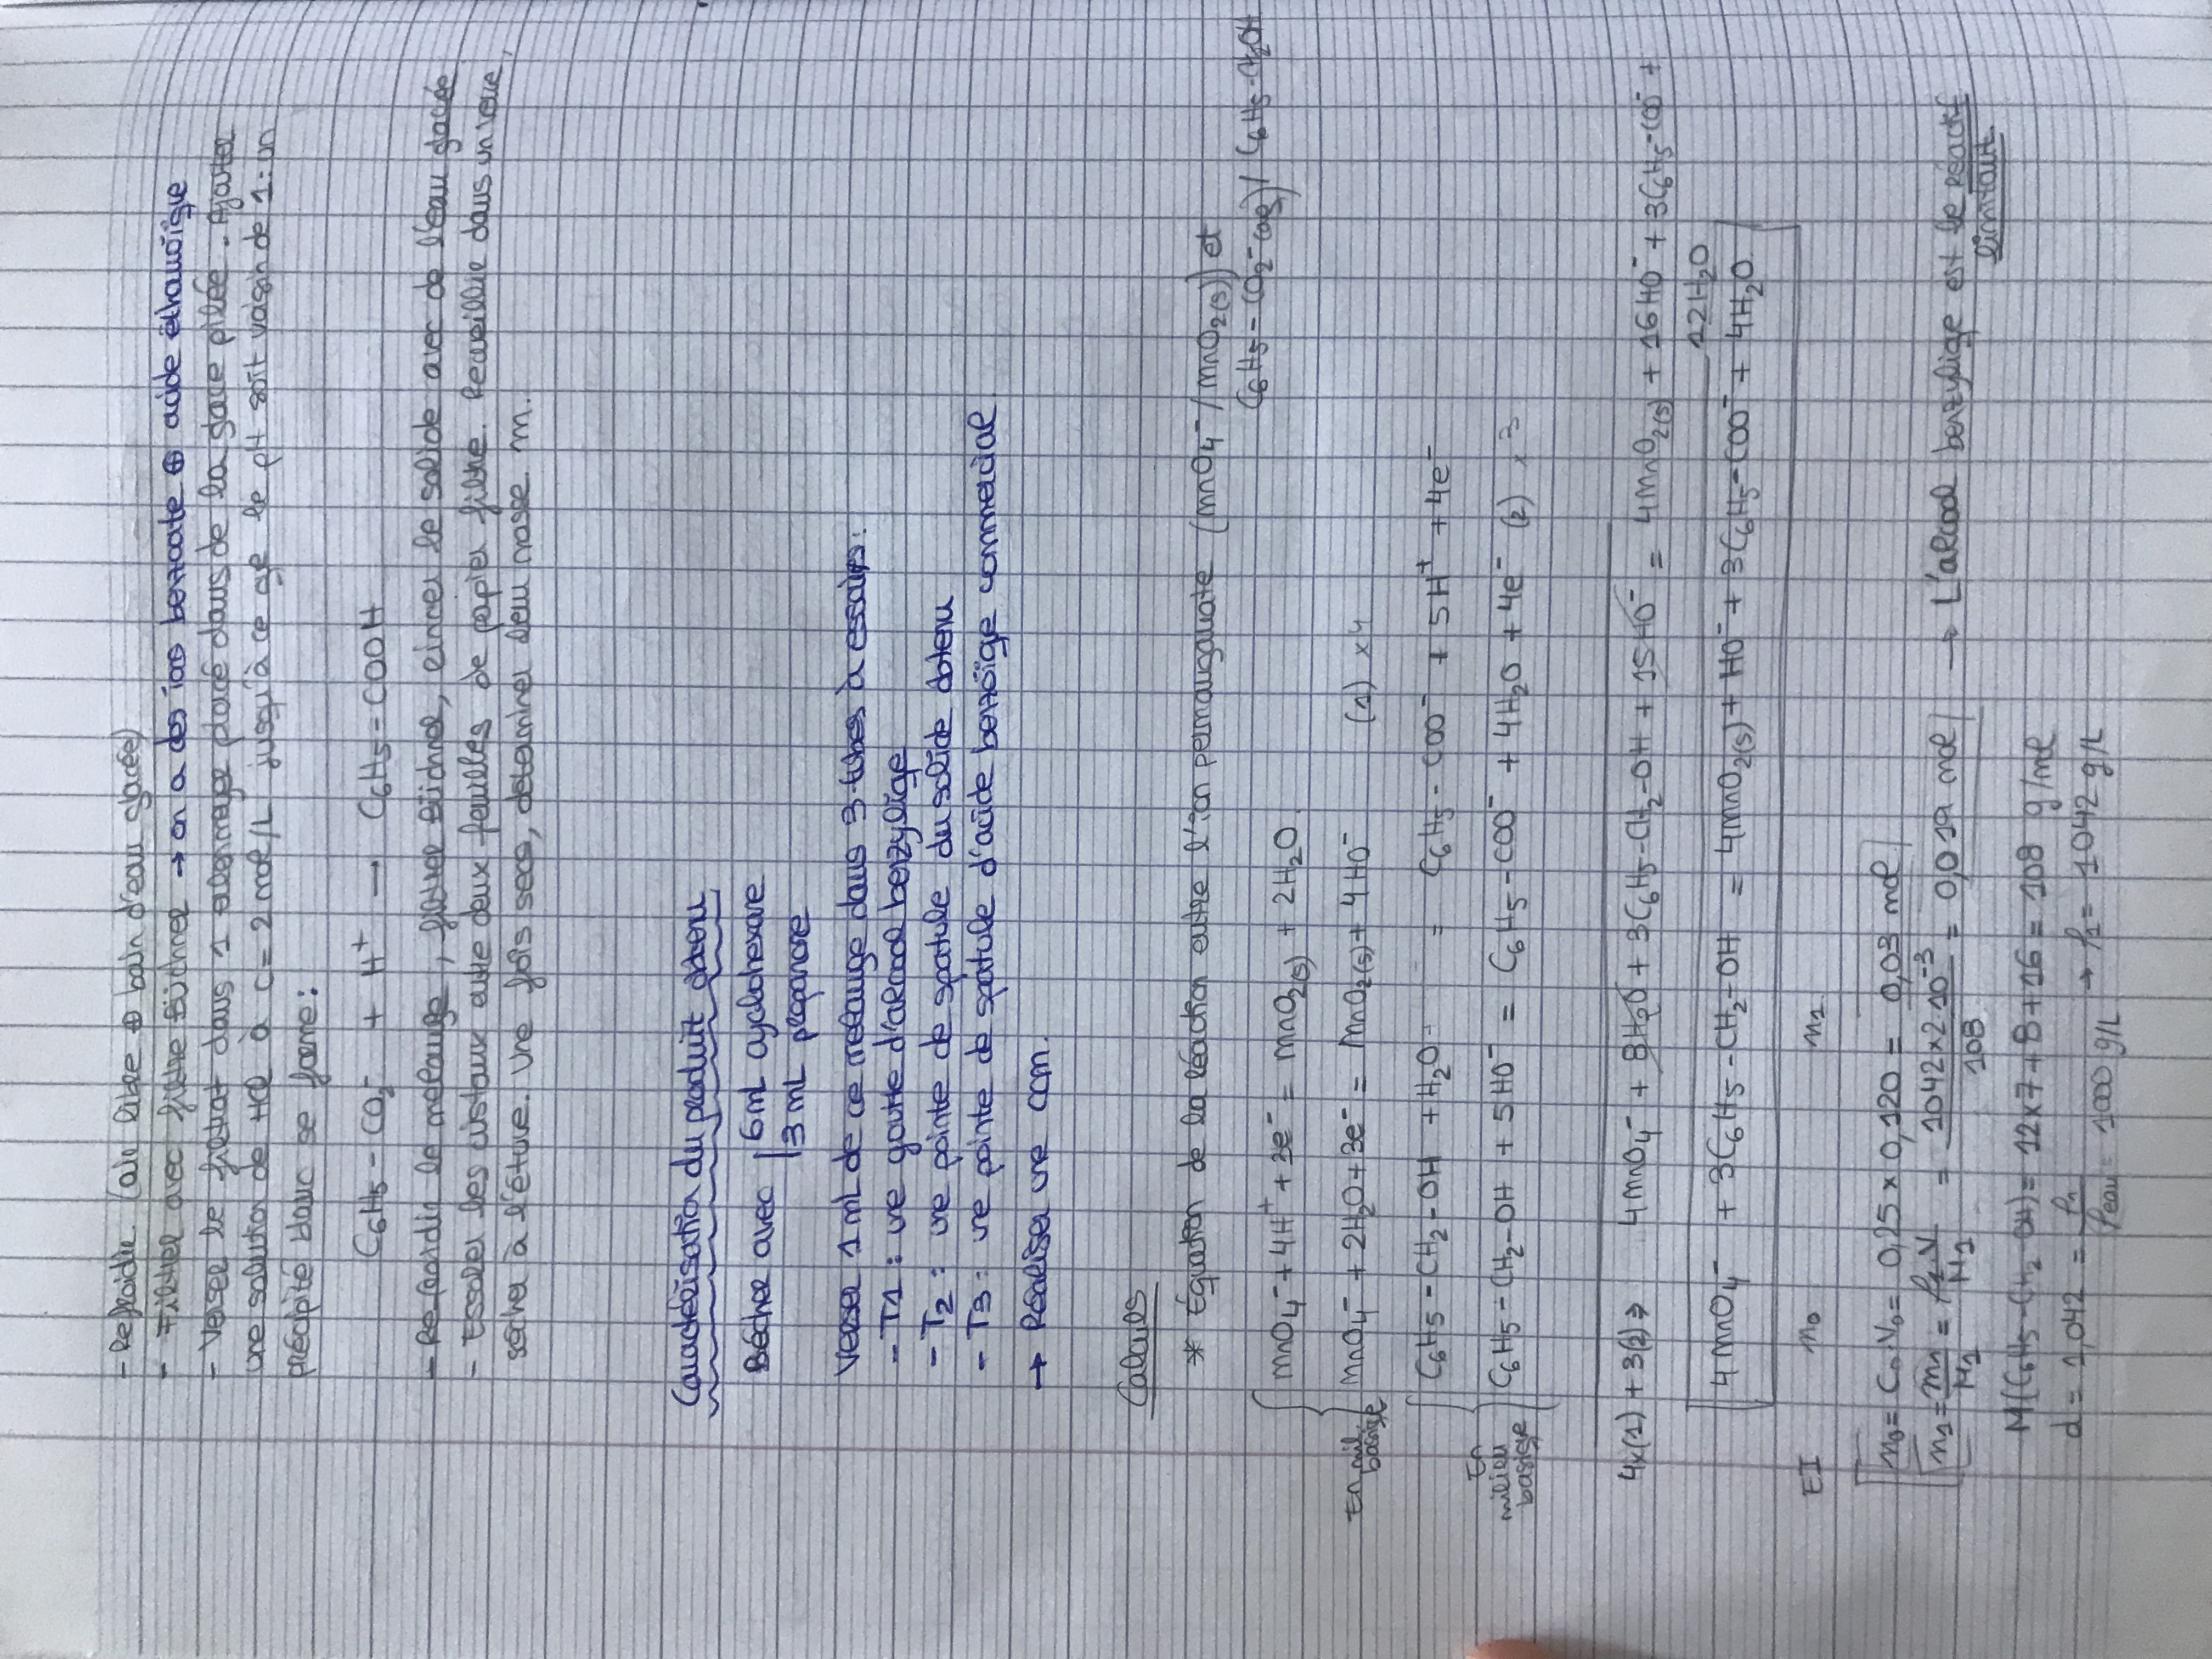 - Refroidir (air libre ⊕ bain d'eau glacée)
- Filtrer avec filtre Büchner → on a des ions benzoate ⊕ acide éthanoïque
- Verser le filtrat dans 1 erlenmeyer placé dans de la glace pilée. Ajouter
une solution de HCl à C = 2 mol/L jusqu'à ce que le pH soit voisin de 1 : un
précipité blanc se forme :
C6H5 - CO2- + H+ → C6H5 - COOH
- Refroidir le mélange, filtrer Büchner, rincer le solide avec de l'eau glacée
- Essorer les cristaux entre deux feuilles de papier filtre. Recueillir dans un verre,
sécher à l'étuve. Une fois secs, déterminer leur masse m.
Caractérisation du produit obtenu
Bécher avec | 6 mL cyclohexane
| 3 mL propanone
Verser 1 mL de ce mélange dans 3 tubes à essais :
- T1 : une goutte d'alcool benzylique
- T2 : une pointe de spatule du solide obtenu
- T3 : une pointe de spatule d'acide benzoïque commercial
→ Réaliser une ccm.
Calculs
* Équation de la réaction entre l'ion permanganate (MnO4- / MnO2(s)) et
C6H5 - CO2-(aq) / C6H5-CH2OH
MnO4- + 4H+ + 3e- = MnO2(s) + 2H2O
En mil. basique MnO4- + 2H2O + 3e- = MnO2(s) + 4HO- (1) x4
C6H5 - CH2 - OH + H2O = C6H5 - COO- + 5H+ + 4e-
En milieu basique C6H5 - CH2 - OH + 5HO- = C6H5 - COO- + 4H2O + 4e- (2) x 3
4x(1) + 3(2) ⇒ 4MnO4- + 8H2O + 3C6H5-CH2-OH + 15HO- = 4MnO2(s) + 16HO- + 3C6H5-COO- +
12H2O
4MnO4- + 3C6H5 - CH2 - OH = 4MnO2(s) + HO- + 3C6H5-COO- + 4H2O
EI n0 n1
n0 = C0 V0 = 0,25 x 0,120 = 0,03 mol
n1 = m1/M1 = ρ1.V/M1 = 1042 x 2.10-3/108 = 0,019 mol → L'alcool benzylique est le réactif
limitant
M(C6H5 - CH2 OH) = 12x7 + 8 + 16 = 108 g/mol
d = 1,042 = ρ1/ρeau = 1000 g/L → ρ1 = 1042 g/L